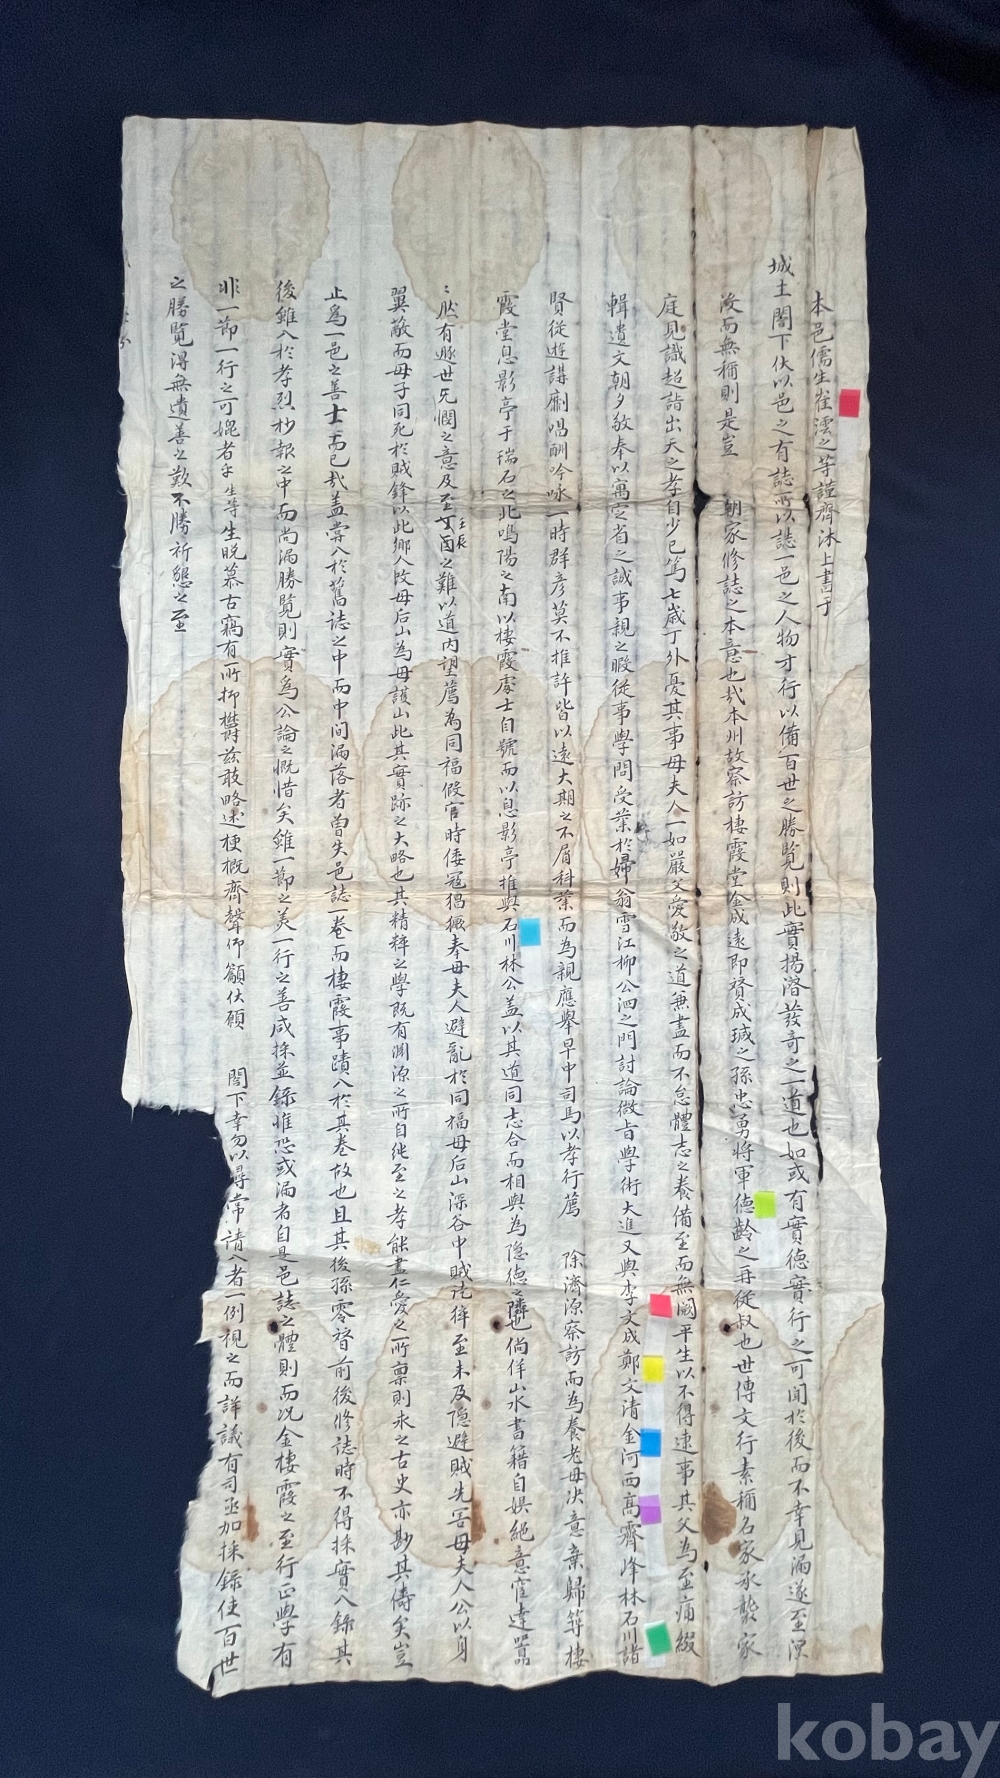 本邑儒生崔澐之等謹齊沐上書于
城主閤下伏以邑之有誌所以誌一邑之人物才行以備百世之勝覽則此實揚潛發奇之一道也如或有實德實行之可聞於後而不幸見漏遂至湮
沒而無稱則是豈 朝家修誌之本意也哉本州故察訪棲霞堂金成遠即贊成瑊之孫忠勇將軍德齡之再從叔也世傳文行素稱名家承襲家
庭見識超詣出天之孝自少已篤七歲丁外憂其事母夫人一如嚴父愛敬之道兼盡而不怠體志之養備至而無闕平生以不得逮事其父為至痛綴
輯遺文朝夕敬奉以寓定省之誠事親之暇從事學問受業於婦翁雪江柳公泗之門討論微旨學術大進又與李文成鄭文清金河西高霽峰林石川諸
賢從遊講劘唱酬吟咏一時群彦莫不推許皆以遠大期之不屑科業而為親應舉早中司馬以孝行薦 除濟源察訪而為養老母决意棄歸築棲
霞堂息影亭于瑞石之北鳴陽之南以棲霞處士自號而以息影亭推與石川林公盖以其道同志合而相與為隱德之隣也倘佯山水書籍自娛絕意窪達嚣
〻然有豚世旡憫之意及至丁酉壬辰之難以道内望薦為同福假官時倭寇猖獗奉母夫人避亂於同福母后山深谷中賊徒猝至未及隱避賊先害母夫人公以身
翼敵而母子同死於賊鋒以此鄉人改母后山為母護山此其實跡之大略也其精粹之學既有淵源之所自純至之孝能盡仁愛之所稟則求之古史亦尠其儔矣豈
止為一邑之善士而已哉盖甞入於舊誌之中而中间漏落者曽失邑誌一卷而棲霞事蹟入於其卷故也且其後孫零替前後修誌時不得採實入錄其
後雖入於孝烈抄報之中而尚漏勝覽則實為公論之慨惜矣雖一節之美一行之善咸採並錄惟恐或漏者自是邑誌之體則而况金棲霞之至行正學有
非一節一行之可媲者乎生等生晩慕古竊有所抑欝茲敢略述梗概齊聲仰籲伏願 閤下幸勿以尋常請入者一例視之而詳議有司亟加採錄使百世
之勝覽得無遺善之歎不勝祈懇之至
kobay